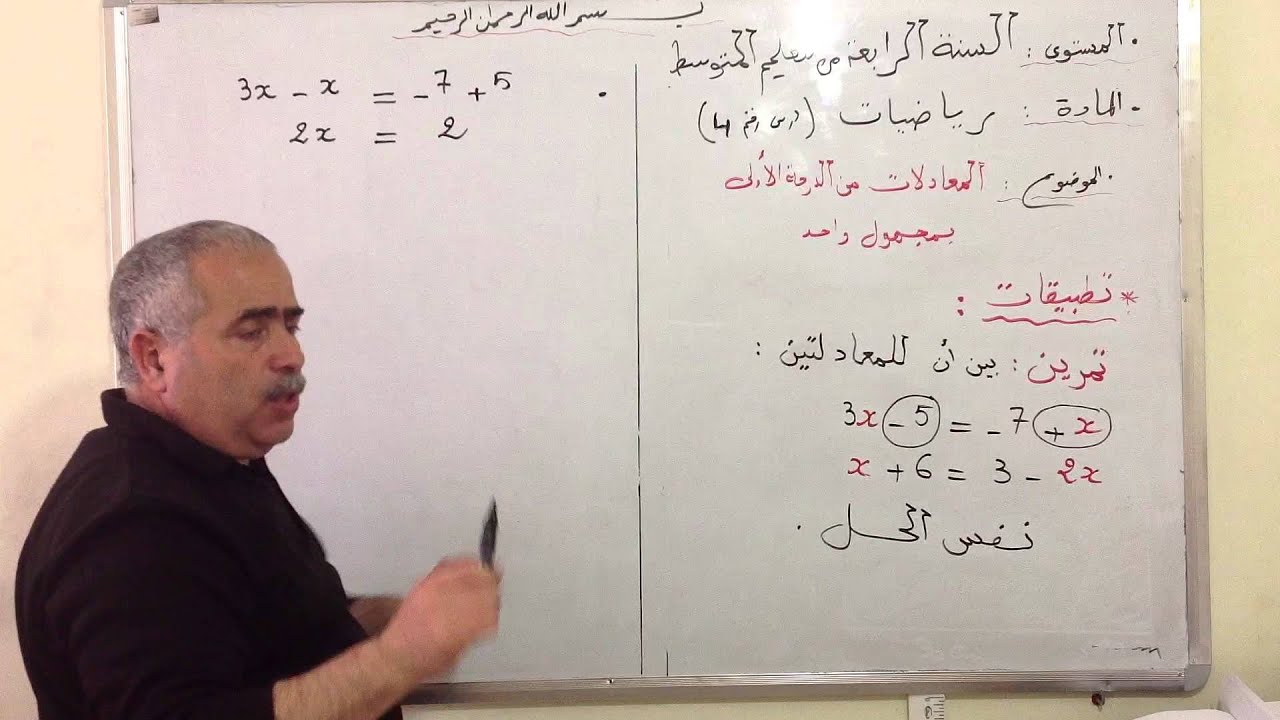 بسم الله الرحمن الرحيم
• المستوى : السنة الرابعة من تعليم المتوسط
• المادة : رياضيات (درس رقم 4)
• الموضوع : المعادلات من الدرجة الأولى
بمجهول واحد
* تطبيقات :
تمرين : بين أن للمعادلتين :
3x - 5 = - 7 + x
x + 6 = 3 - 2x
نفس الحل .
3x - x = - 7 + 5
2x = 2